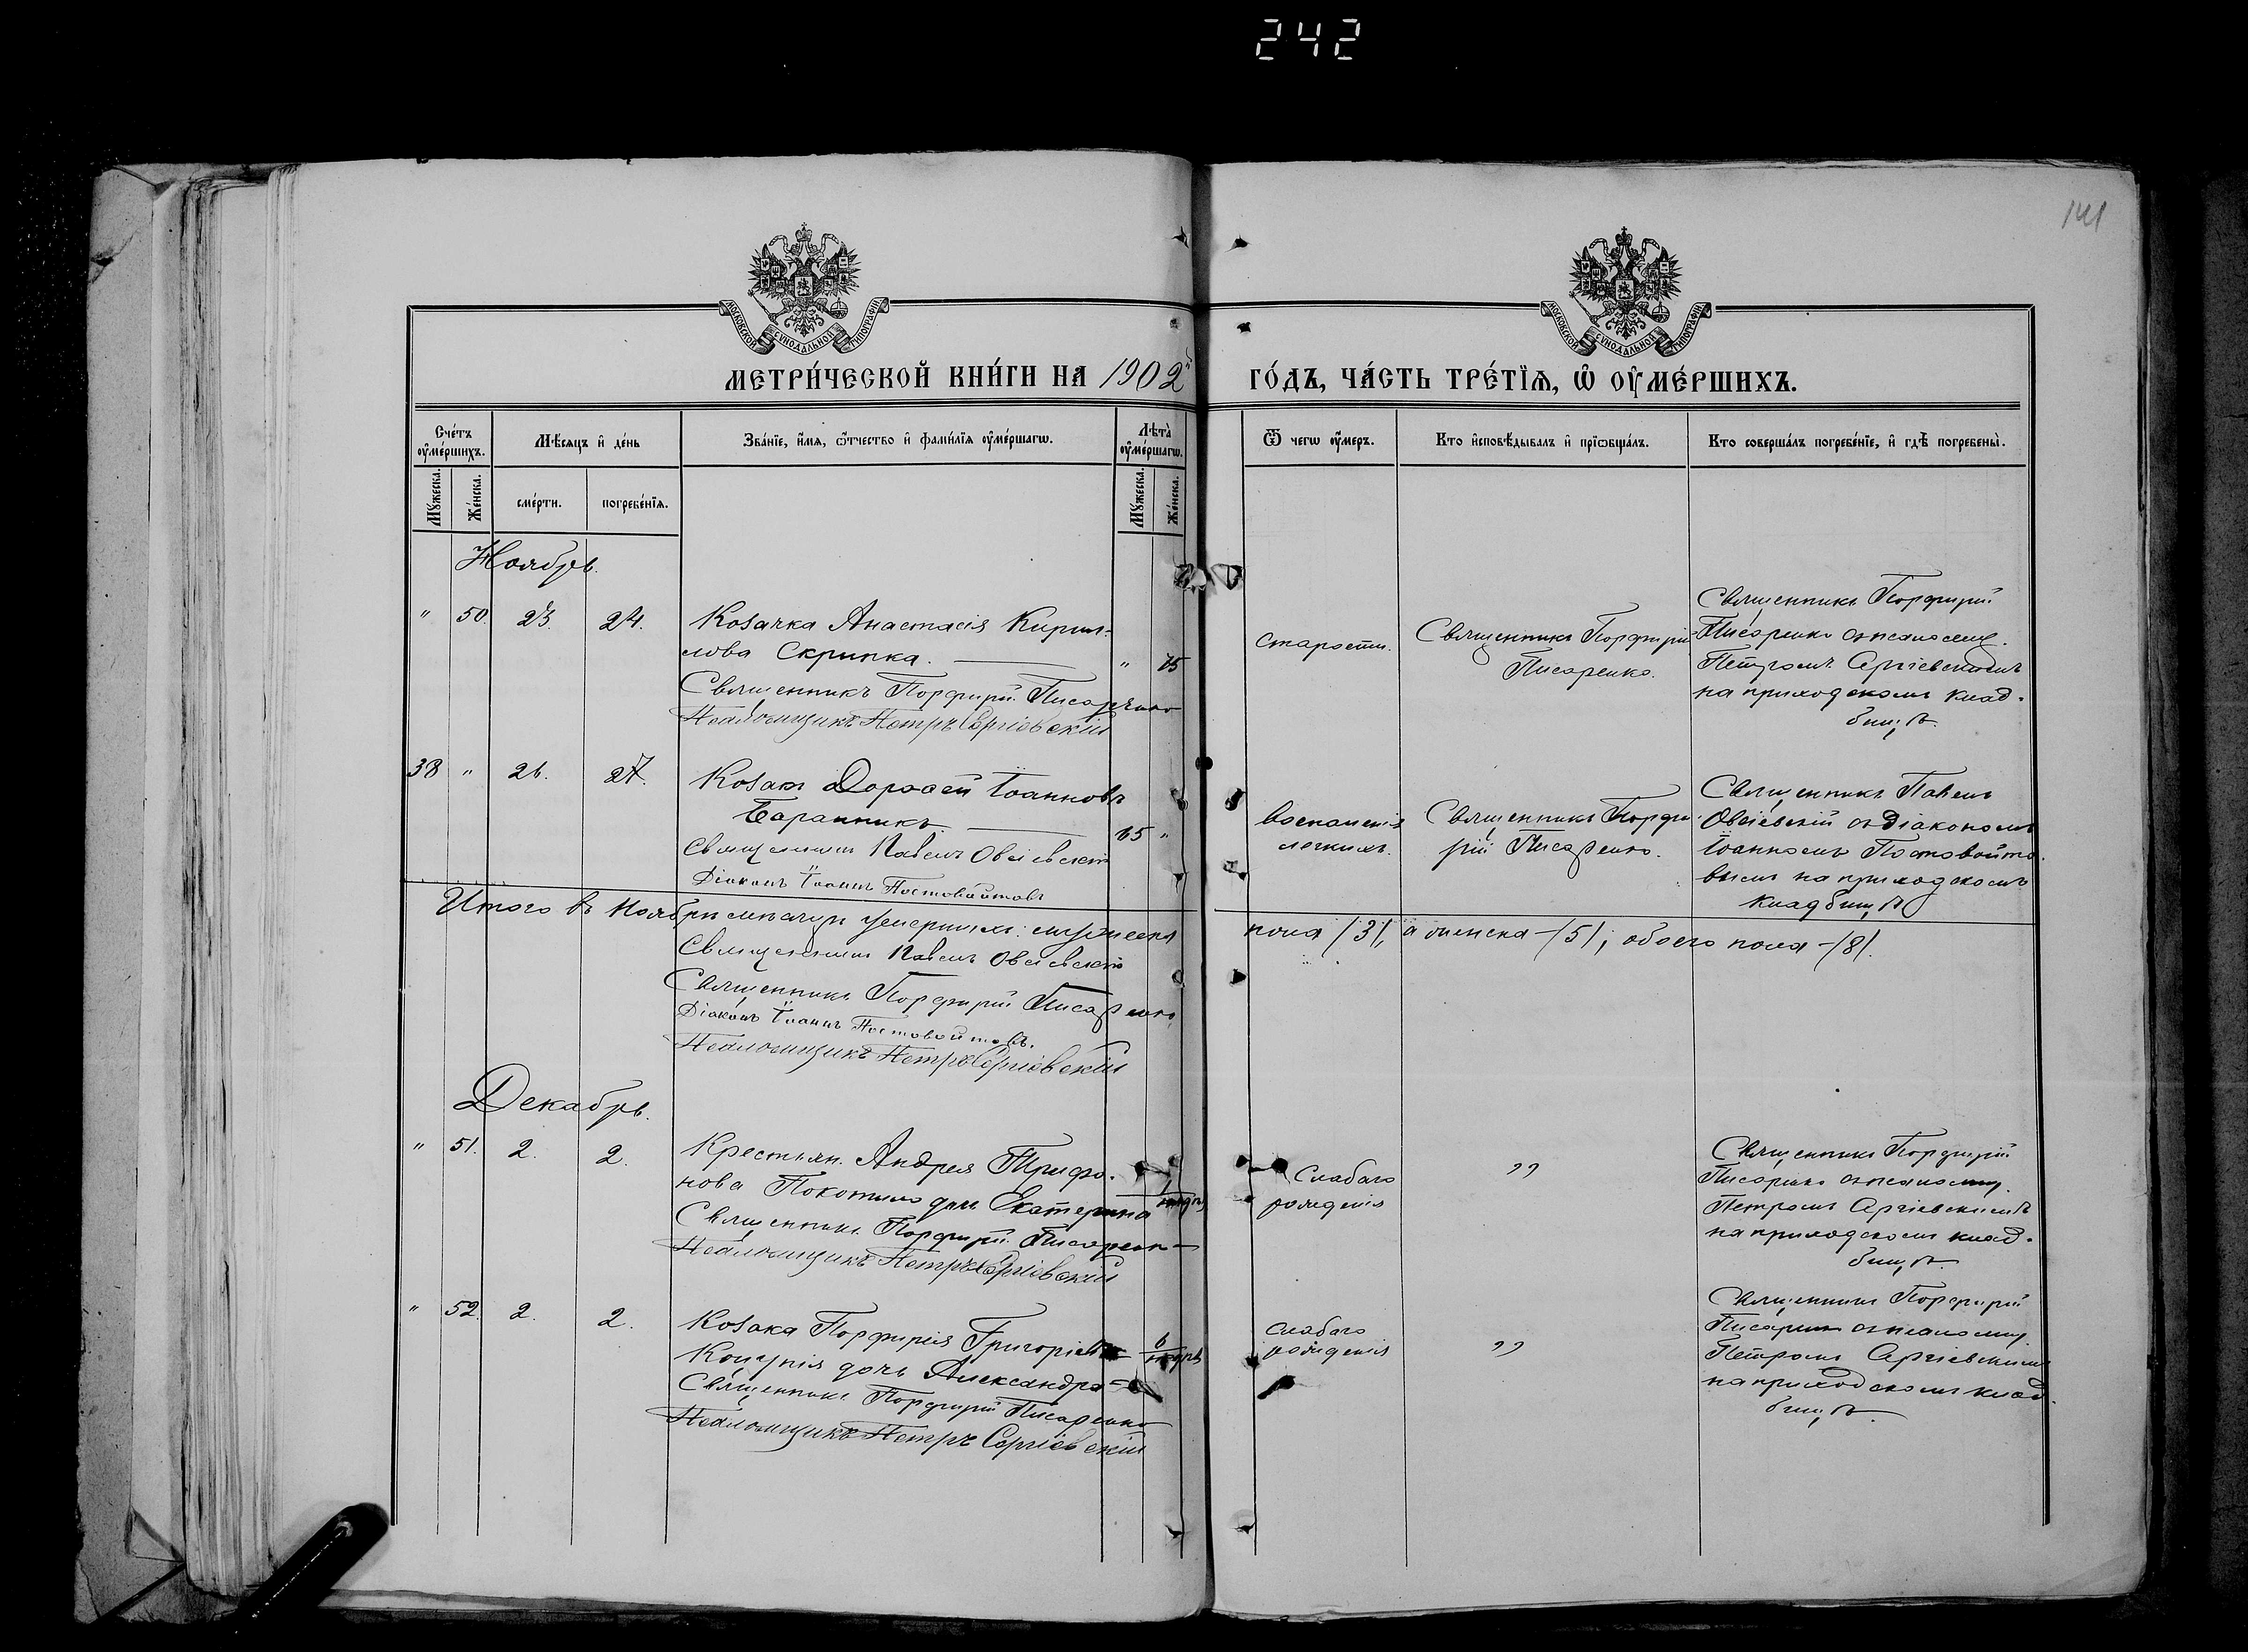 242
141
МОСКОВСКОЙ СѴНОДАЛЬНОЙ ТИПОГРАФІИ
МОСКОВСКОЙ СѴНОДАЛЬНОЙ ТИПОГРАФІИ
МЕТРИ́ЧЕСКОЙ КНИ́ГИ НА 1902й ГО́ДЪ, ЧА́СТЬ ТРЕ́ТЇѦ, Ѡ҆ ОУ҆МЕ́РШИХЪ.
Сче́тъ оу҆ме́ршихъ.
Мѣ́сяцъ и҆ де́нь
Зва́нїе, и҆́мя, ѻ҆́тчество и҆ фами́лїя оу҆ме́ршагѡ.
Лѣ́та оу҆ме́ршагѡ.
Мꙋ́жеска.
Же́нска.
сме́рти.
погребе́нїя.
Мꙋ́жеска.
Же́нска.
Ѿ чегѡ оу҆́меръ.
Кто и҆сповѣ́дывалъ и҆ прїѡбща́лъ.
Кто соверша́лъ погребе́нїе, и҆ гдѣ̀ погребены̀.
Ноябрь.
" 50. 23. 24. Козачка Анастасія Кирил-
лова Скрипка. " 75
Священникъ Порфирій Писаренко
Псаломщикъ Петръ Сергіевскій
старости.
Священникъ Порфирій
Писаренко.
Священникъ Порфирій
Писаренко съ псаломщ.
Петромъ Сергіевскимъ
на приходскомъ клад-
бищѣ.
38 " 26. 27. Козакъ Дорофей Іоанновъ
Баранникъ. 65 "
Священникъ Павелъ Овсіевскій
Діаконъ Іоаннъ Постовойтовъ
воспаленія
легкихъ.
Священникъ Порфи-
рій Писаренко.
Священникъ Павелъ
Овсіевскій съ діакономъ
Іоанномъ Постовойто-
вымъ на приходскомъ
кладбищѣ
Итого въ Ноябрѣ мѣсяцѣ умершихъ: мужеска пола /3/, а женска -/5/; обоего пола -/8/.
Священникъ Павелъ Овсіевскій
Священникъ Порфирій Писаренко
Діаконъ Іоаннъ Постовойтовъ.
Псаломщикъ Петръ Сергіевскій
Декабрь.
" 51. 2. 2. Крестьян. Андрея Трифо-
нова Покотило дочь Екатерина
Священникъ Порфирій Писаренко
Псаломщикъ Петръ Сергіевскій
Слабаго
рожденія
"
Священникъ Порфирій
Писаренко съ псаломщ.
Петромъ Сергіевскимъ
на приходскомъ клад-
бищѣ.
" 52. 2. 2. Козака Порфирія Григоріева
дочь Александра
Священникъ Порфирій Писаренко
Псаломщикъ Петръ Сергіевскій
слабаго
рожденія
"
Священникъ Порфирій
Писаренко съ псаломщ.
Петромъ Сергіевскимъ
на приходскомъ клад-
бищѣ.